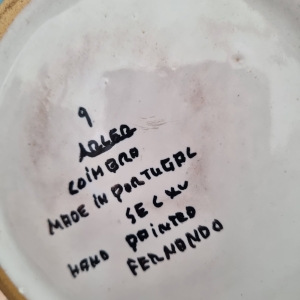 9
ADLER
COIMBRA
MADE IN PORTUGAL
SEC XV
HAND PAINTED
FERNANDO